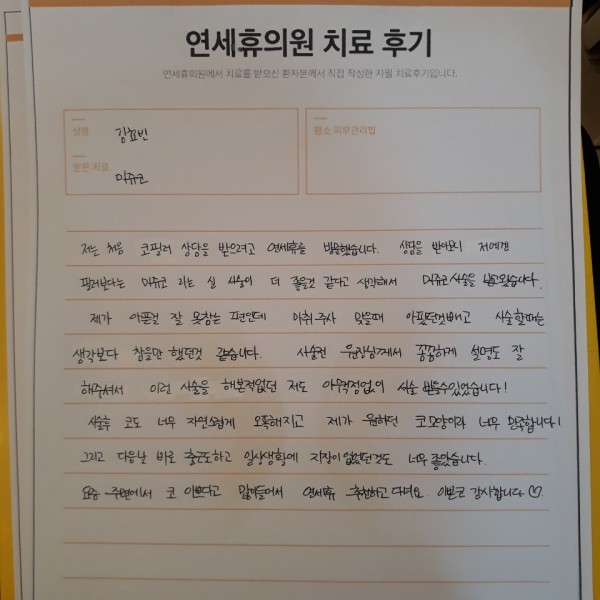 연세휴의원 치료 후기
연세휴의원에서 치료를 받으신 환자분께서 직접 작성한 자필 치료후기입니다.
성명
김효빈
받은 치료
미쥬코
평소 피부관리법
저는 처음 코필러 상담을 받으려고 연세휴를 방문했습니다. 상담을 받아보니 저에겐
필러보다는 미쥬코 라는 실 시술이 더 좋을것 같다고 생각해서 미쥬코시술을 받고왔습니다.
제가 아픈걸 잘 못참는 편인데 마취주사 맞을때 아팠던것빼고 시술할때는
생각보다 참을만 했던것 같습니다. 시술전 원장님께서 꼼꼼하게 설명도 잘
해주셔서 이런 시술을 해본적없던 저도 아무걱정없이 시술 받을수있었습니다!
시술후 코도 너무 자연스럽게 오똑해지고 제가 원하던 코모양이라 너무 만족합니다!
그리고 다음날 바로 출근도하고 일상생활에 지장이 없었던것도 너무 좋았습니다.
요즘 주변에서 코 이쁘다고 많이들어서 연세휴 추천하고 다녀요. 이쁜코 감사합니다 ♡.